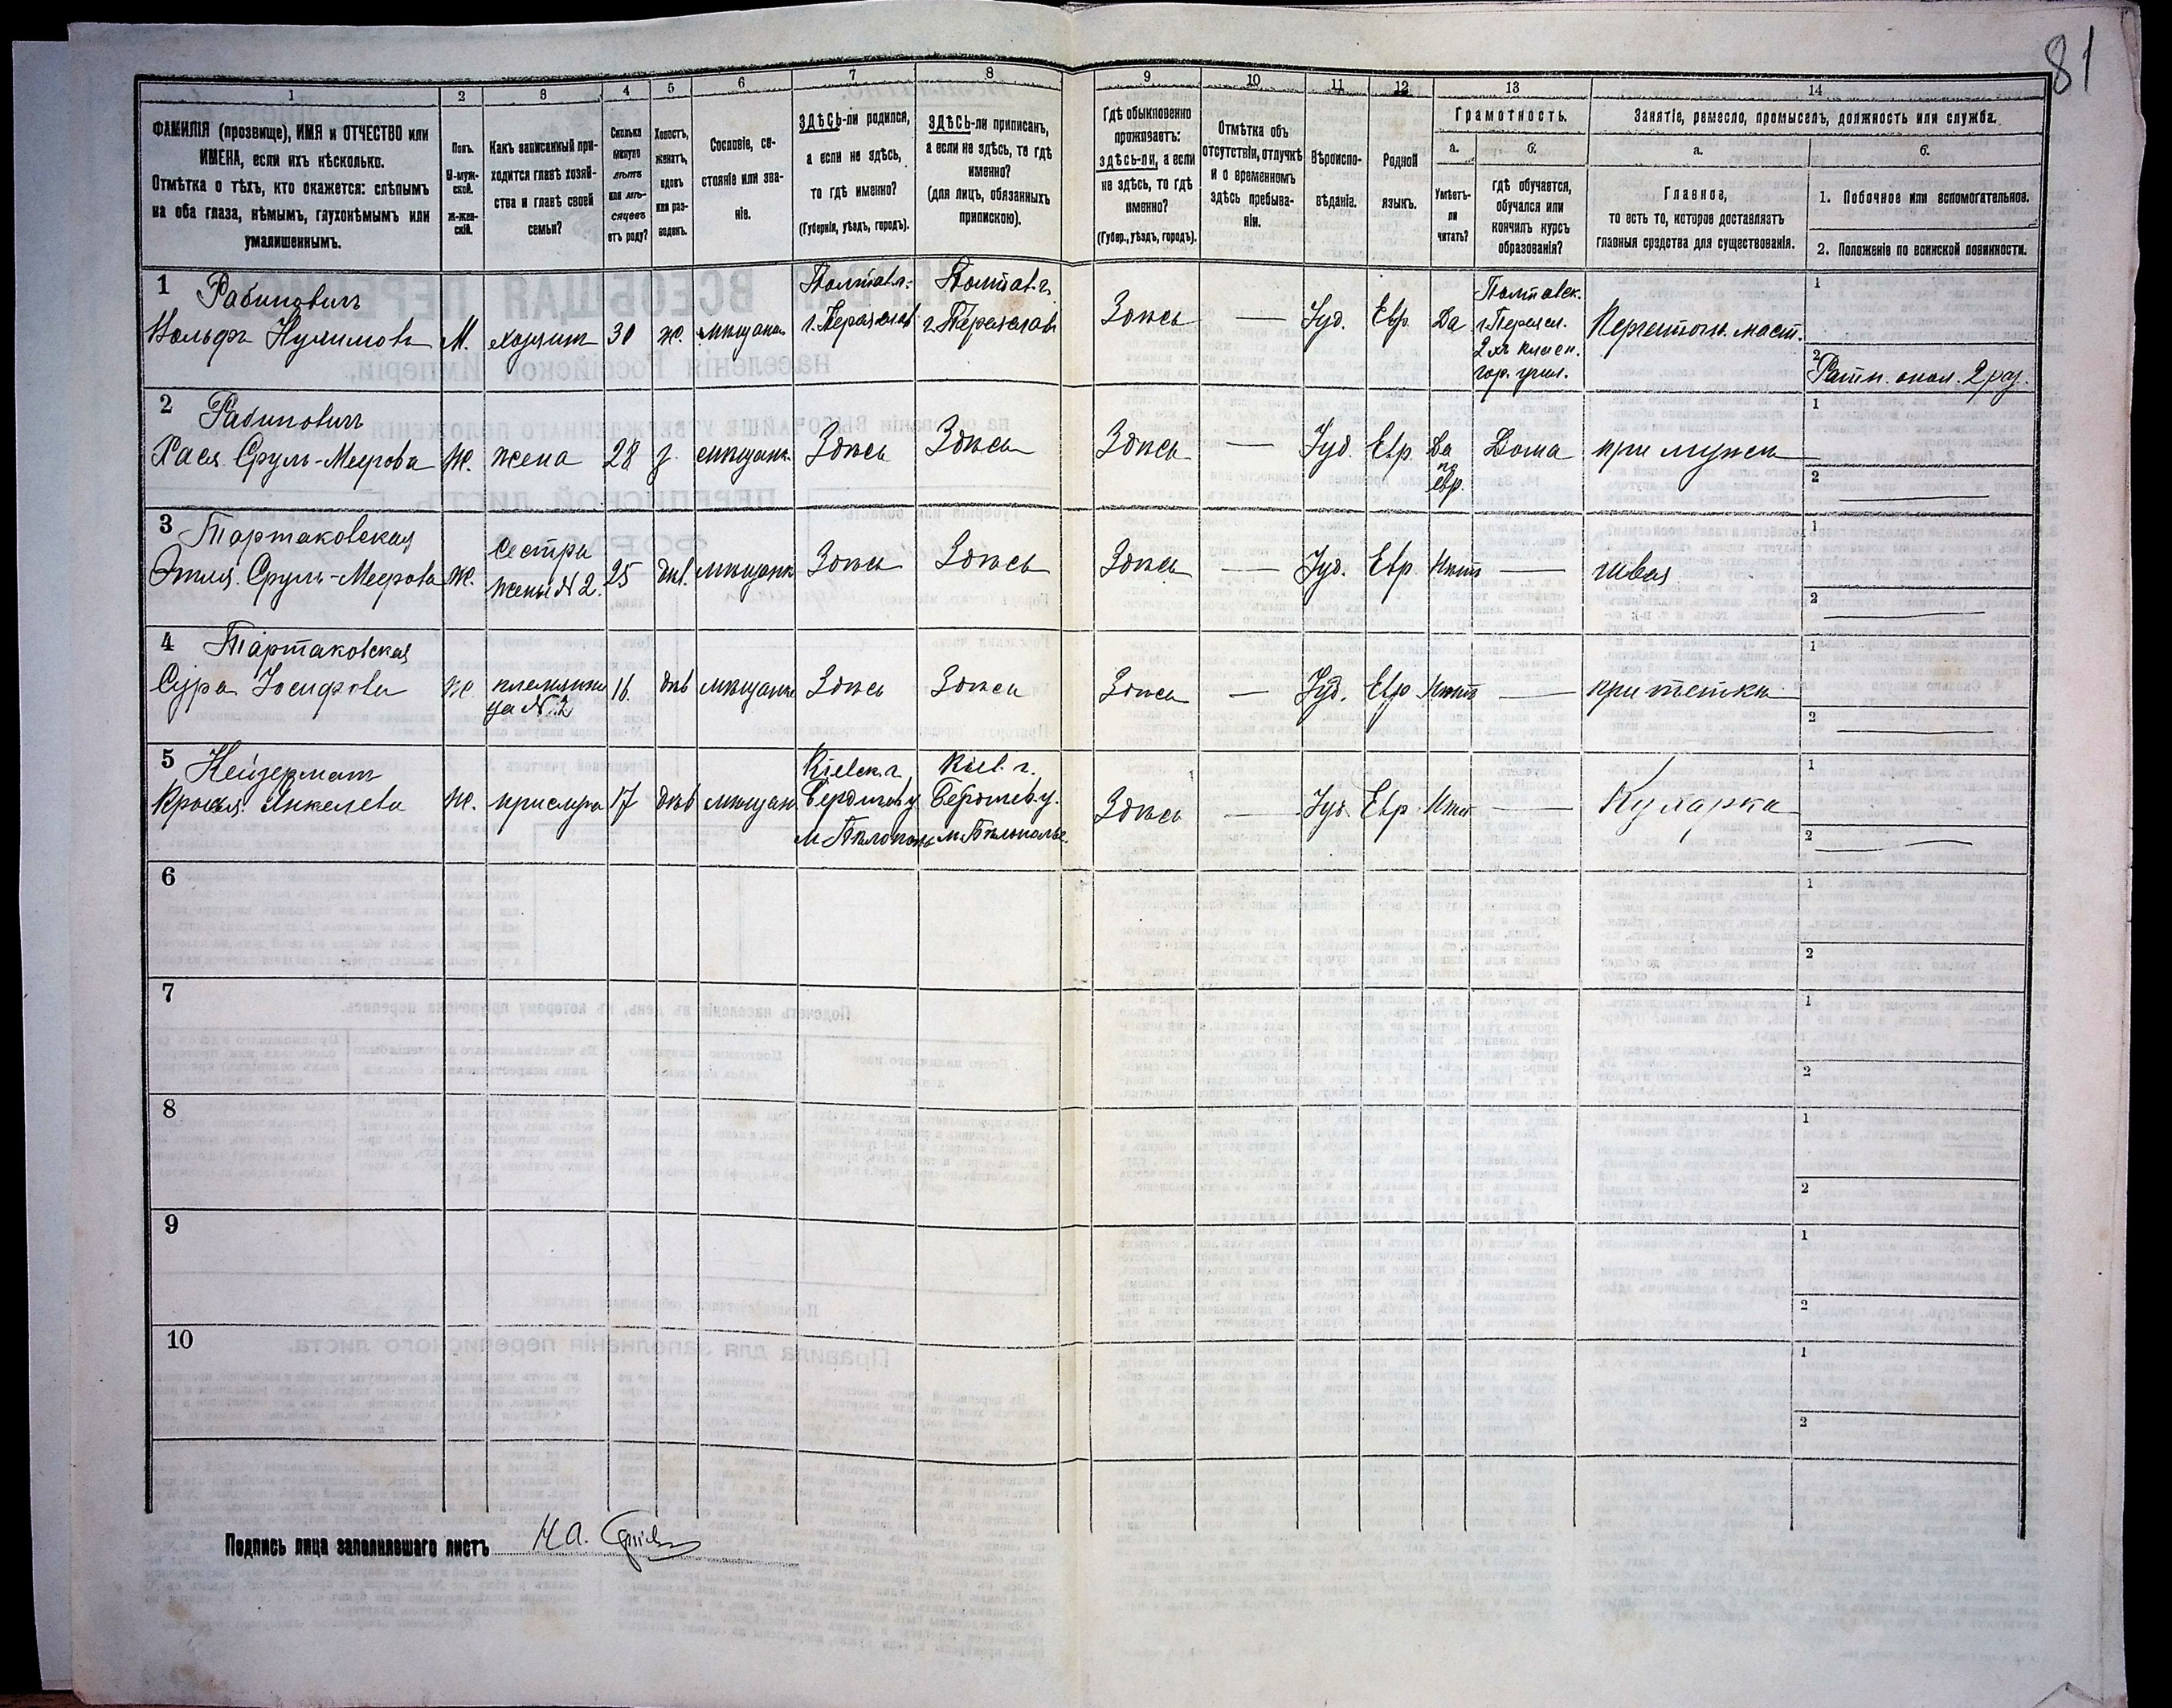 81
1
2
3
4
5
6
7
8
9
10
11
12
13
14
ФАМИЛІЯ (прозвище), ИМЯ и ОТЧЕСТВО или
ИМЕНА, если ихъ нѣсколько.
Отмѣтка о тѣхъ, кто окажется: слѣпымъ
на оба глаза, нѣмымъ, глухонѣмымъ или
умалишеннымъ.
Полъ.
М-муж-
ской.
Ж-жен-
скій.
Какъ записанный при-
ходится главѣ хозяй-
ства и главѣ своей
семьи?
Сколько
минуло
лѣтъ
или мѣ-
сяцевъ
отъ роду?
Холостъ,
женатъ,
вдовъ
или раз-
веденъ.
Сословіе, со-
стояніе или зва-
ніе.
ЗДѢСЬ-ли родился,
а если не здѣсь,
то гдѣ именно?
(Губернія, уѣздъ, городъ).
ЗДѢСЬ-ли приписанъ,
а если не здѣсь, то гдѣ
именно?
(для лицъ, обязанныхъ
припискою).
Гдѣ обыкновенно
проживаетъ:
здѣсь-ли, а если
не здѣсь, то гдѣ
именно?
(Губер., уѣздъ, городъ).
Отмѣтка объ
отсутствіи, отлучкѣ
и о временномъ
здѣсь пребыва-
ніи.
Вѣроиспо-
вѣданіе.
Родной
языкъ.
Грамотность.
а.
Умѣетъ-
ли
читать?
б.
гдѣ обучается,
обучался или
кончилъ курсъ
образованія?
Занятіе, ремесло, промыселъ, должность или служба.
а.
Главное,
то есть то, которое доставляетъ
главныя средства для существованія.
б.
1. Побочное или вспомогательное.
2. Положеніе по воинской повинности.
1 Рабиновичъ
Вольфъ Нухимовъ М. хозяинъ 30 ж. мѣщанин
Полтав. г.
г. Переяславъ
Полтав. г.
г. Переяславъ
Здѣсь — Іуд. Евр. Да
Полтавск.
г. Переясл.
2хъ класн.
гор. учил.
Перчаточн. маст.
1
2 Ратн. опол. 2 раз.
2 Рабиновичъ
Хася Сруль-Меерова Ж. жена 28 з. мѣщанк. Здѣсь Здѣсь Здѣсь — Іуд. Евр. Да
по
евр.
Дома при мужѣ
1
2
3 Тартаковская
Этля Сруль-Меерова Ж.
Сестра
жены № 2.
25 дѣв. мѣщанк Здѣсь Здѣсь Здѣсь — Іуд. Евр. Нѣтъ — швея
1
2
4 Тартаковская
Сура Іосифова Ж.
племянни
ца № 2
16. дѣв мѣщанка Здѣсь Здѣсь Здѣсь — Іуд. Евр Нѣтъ — при теткѣ
1
2
5 Нейзерман
Янкелева Ж. прислуга 17 дѣв мѣщан
Кіевск. г.
Бердичев у.
м. Бѣлополье
Кіев. г.
Бердичев. у.
м. Бѣлополье.
Здѣсь — Іуд. Евр. Нѣт — Кухарка
1
2
6
1
2
7
1
2
8
1
2
9
1
2
10
1
2
Подпись лица заполнявшаго листъ